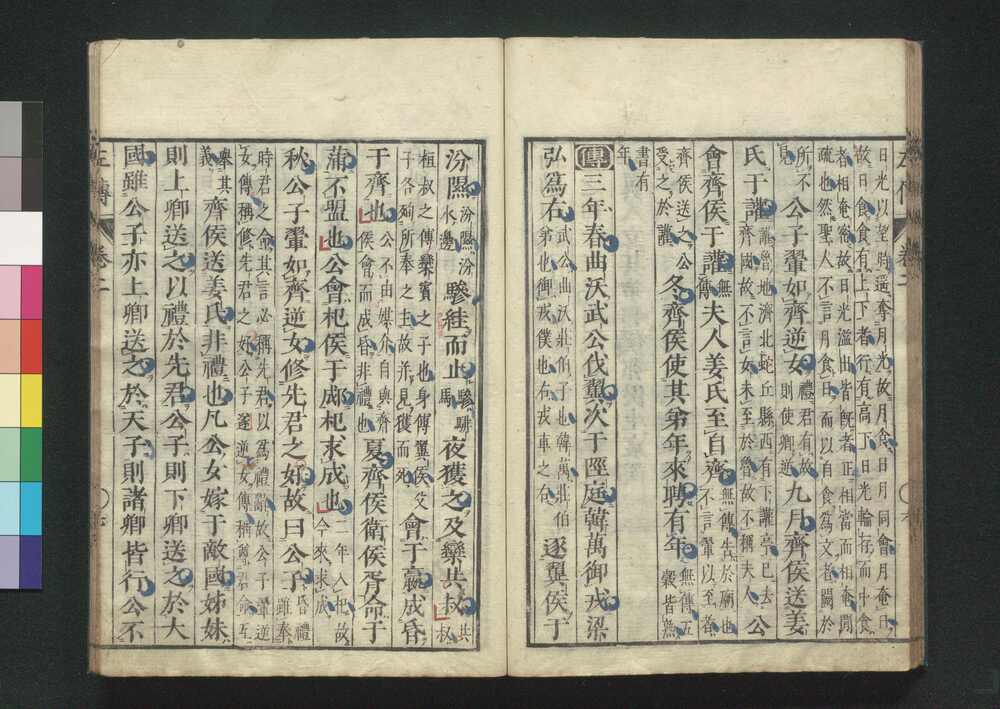 日光以望時遥奪月光故月食日月同會月奄日
故日食食有上下者行有高下日光輪存而中食
者相奄密故日光溢出皆既者正相當而相奄間
疏也然聖人不言月食日而以自食爲文者闕於
所不見公子翬如齊逆女禮君有故則使卿逆九月齊侯送姜
氏于讙讙魯地濟北蛇丘縣西有下讙亭已去齊國故不言女未至於魯故不稱夫人公
會齊侯于讙無傳夫人姜氏至自齊無傳告於廟也不言翬以至者
齊侯送之公受之於讙冬齊侯使其弟年來聘有年無傳五穀皆熟
書有年
傳三年春曲沃武公伐翼次于陘庭韓萬御戎梁
弘爲右武公曲沃莊伯子也韓萬莊伯弟也御戎僕也右戎車之右逐翼侯于
汾隰汾隰汾水邊驂絓而止驂騑馬夜獲之及欒共叔共叔
桓叔之傅欒賓之子也身傅翼侯父子各殉所奉之主故并見獲而死會于嬴成昏
于齊也公不由媒介自與齊侯會而成昏非禮也夏齊侯衛侯胥命于
蒲不盟也公會杞侯于郕杞求成也二年入杞故今來求成
秋公子翬如齊逆女修先君之好故曰公子昏禮雖奉
時君之命其言必稱先君以爲禮辭故公子翬逆
女傳稱修先君之好公子遂逆女傳稱尊君命互
舉其義齊侯送姜氏非禮也凡公女嫁于敵國姊妹
則上卿送之以禮於先君公子則下卿送之於大
國雖公子亦上卿送之於天子則諸卿皆行公不
左傳 卷二